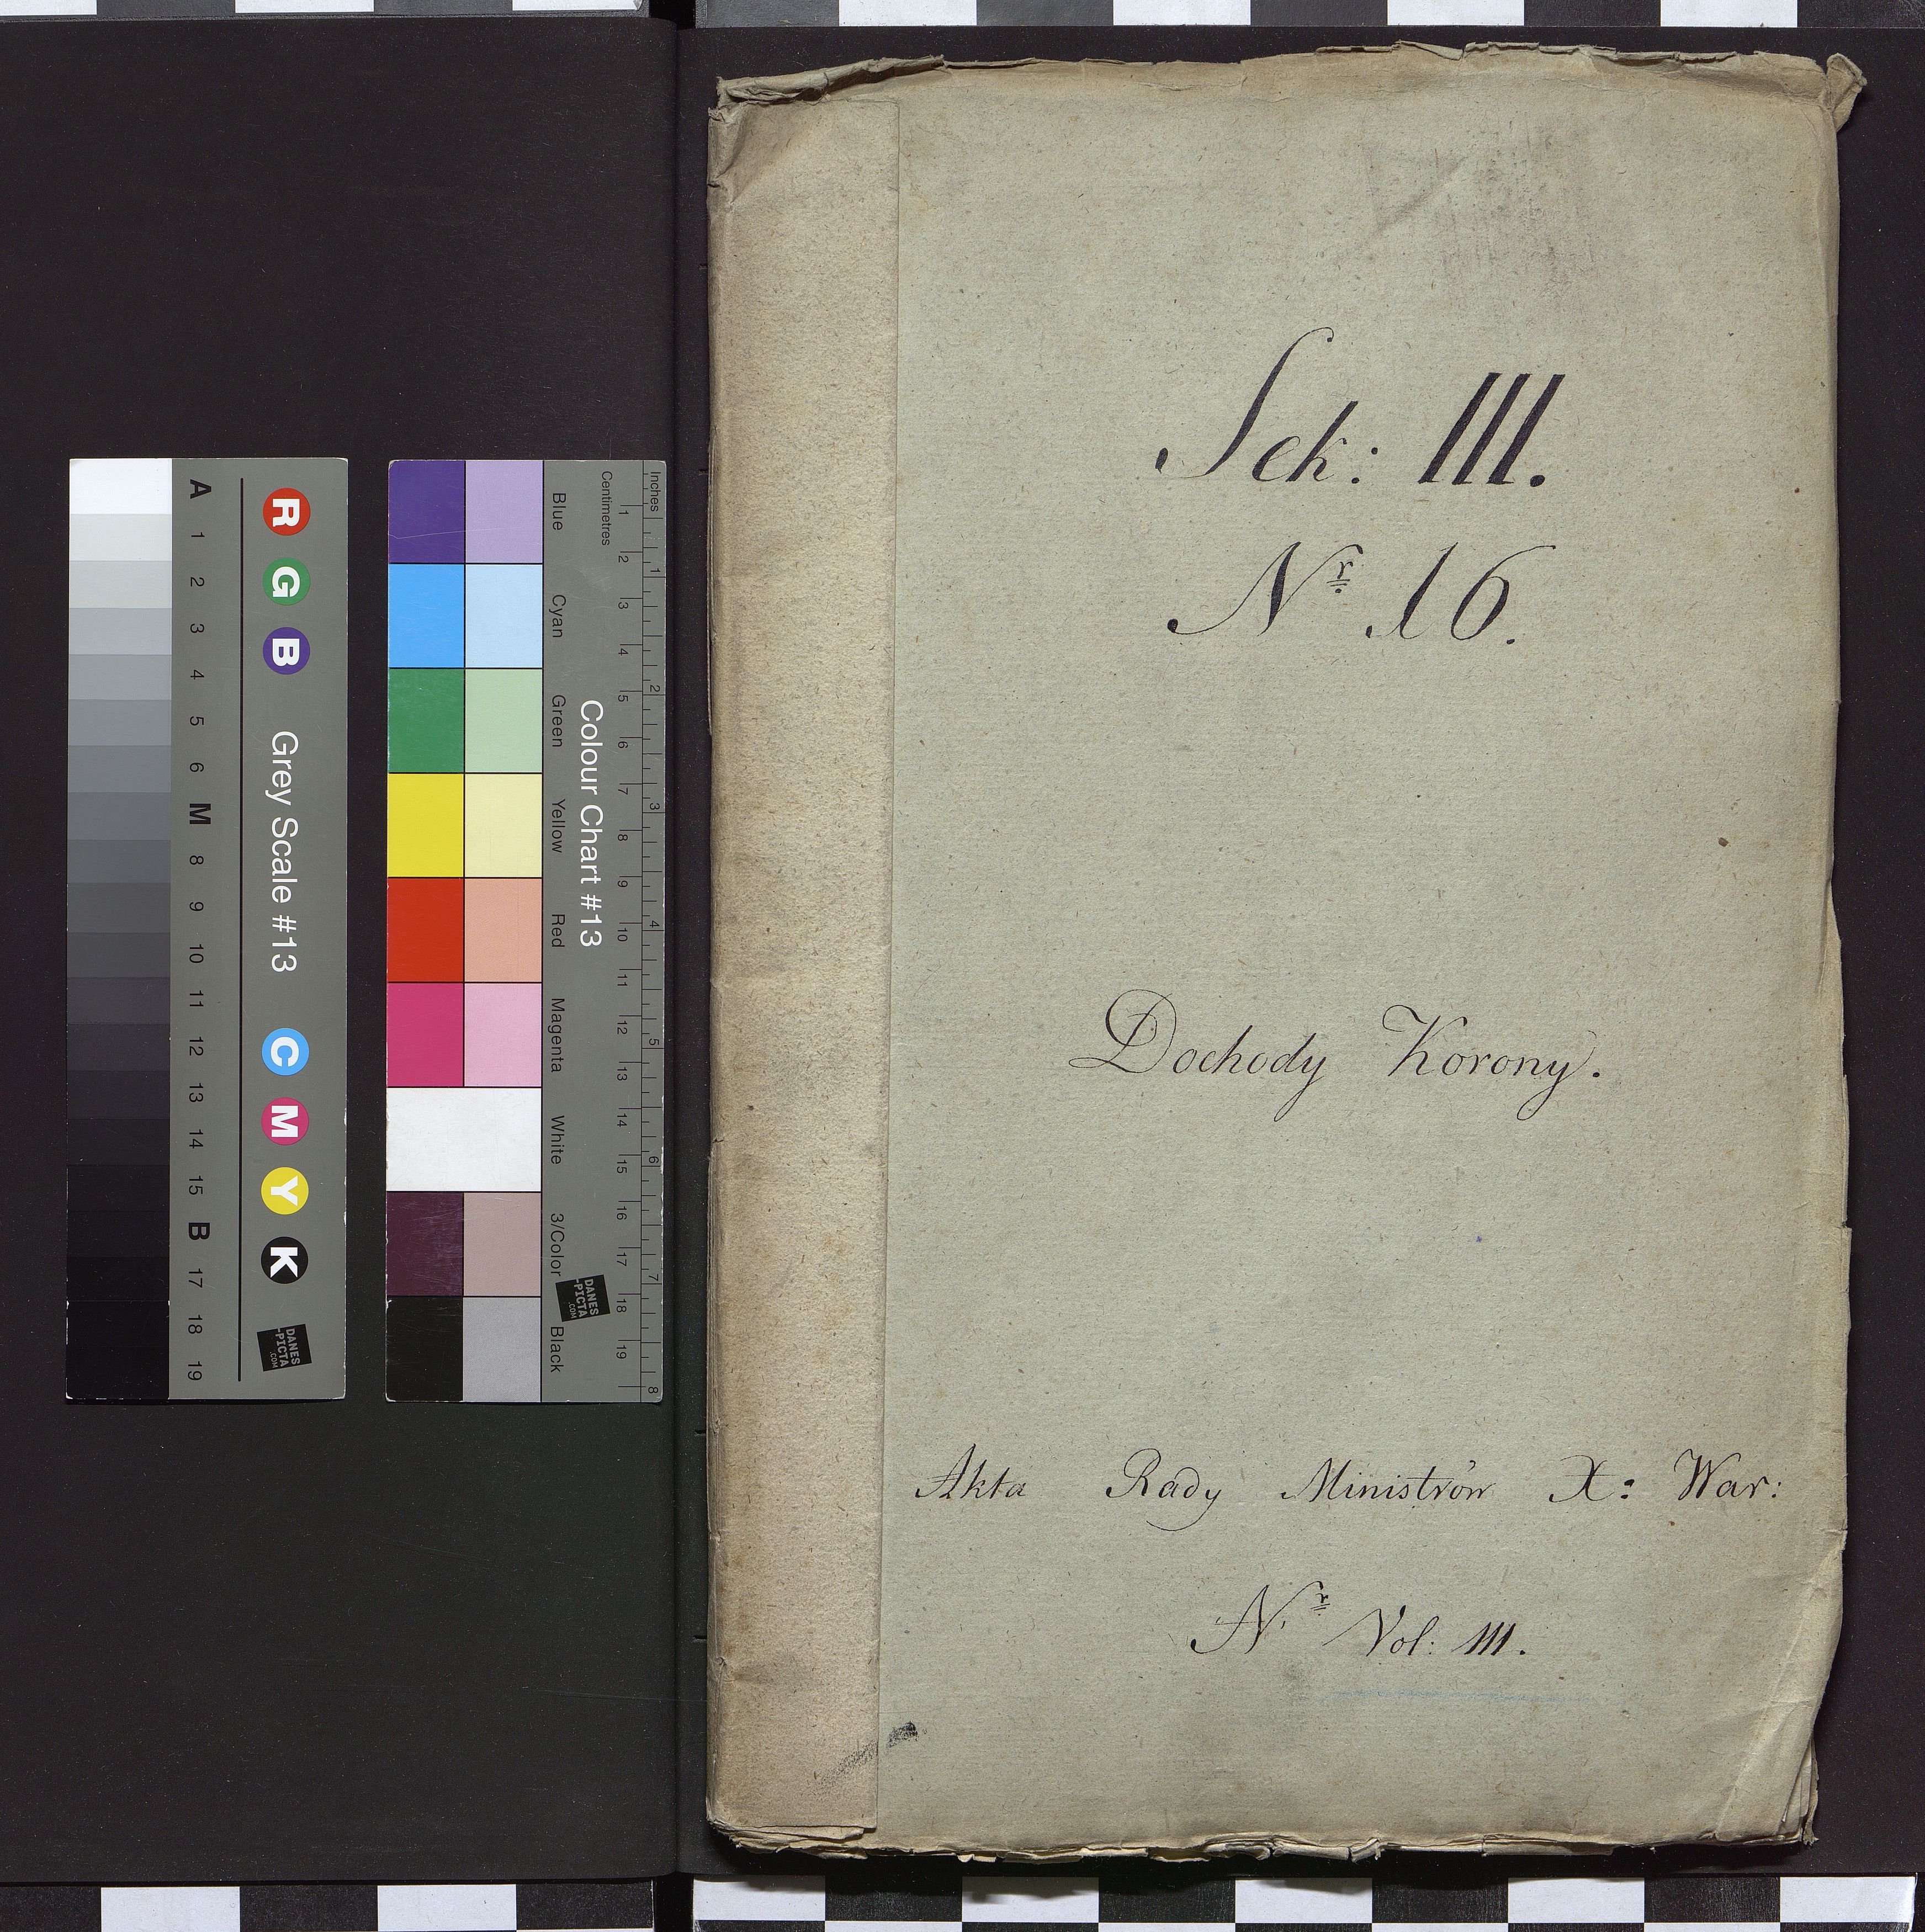 Sek: III.
Nr 16.
Dochody Korony.
Akta Rady Ministrów X: War:
Nr Vol: III.
A 1 2 3 4 5 6 M 8 9 10 11 12 13 14 15 B 17 18 19
R G B Grey Scale #13 C M Y K
DANES
-PICTA
.COM
Blue Cyan Green Yellow Red Magenta White 3/Color Black
Colour Chart #13
DANES
-PICTA
.COM
Centimetres 1 2 3 4 5 6 7 8 9 10 11 12 13 14 15 16 17 18 19
Inches 1 2 3 4 5 6 7 8